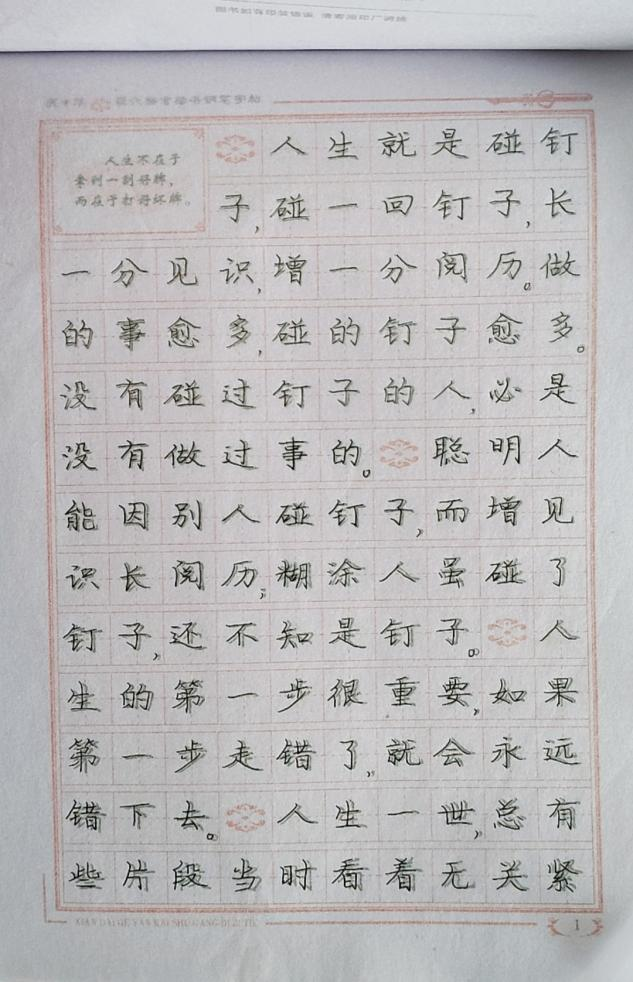 人生不在于
拿到一副好牌，
而在于打好坏牌。
人生就是碰钉
子，碰一回钉子，长
一分见识，增一分阅历。做
的事愈多，碰的钉子愈多。
没有碰过钉子的人，必是
没有做过事的。聪明人
能因别人碰钉子，而增见
识长阅历；糊涂人虽碰了
钉子，还不知是钉子。人
生的第一步很重要，如果
第一步走错了，就会永远
错下去。人生一世，总有
些片段当时看着无关紧
XIAN DAI GE YAN KAI SHU GANG BI ZI TIE
1